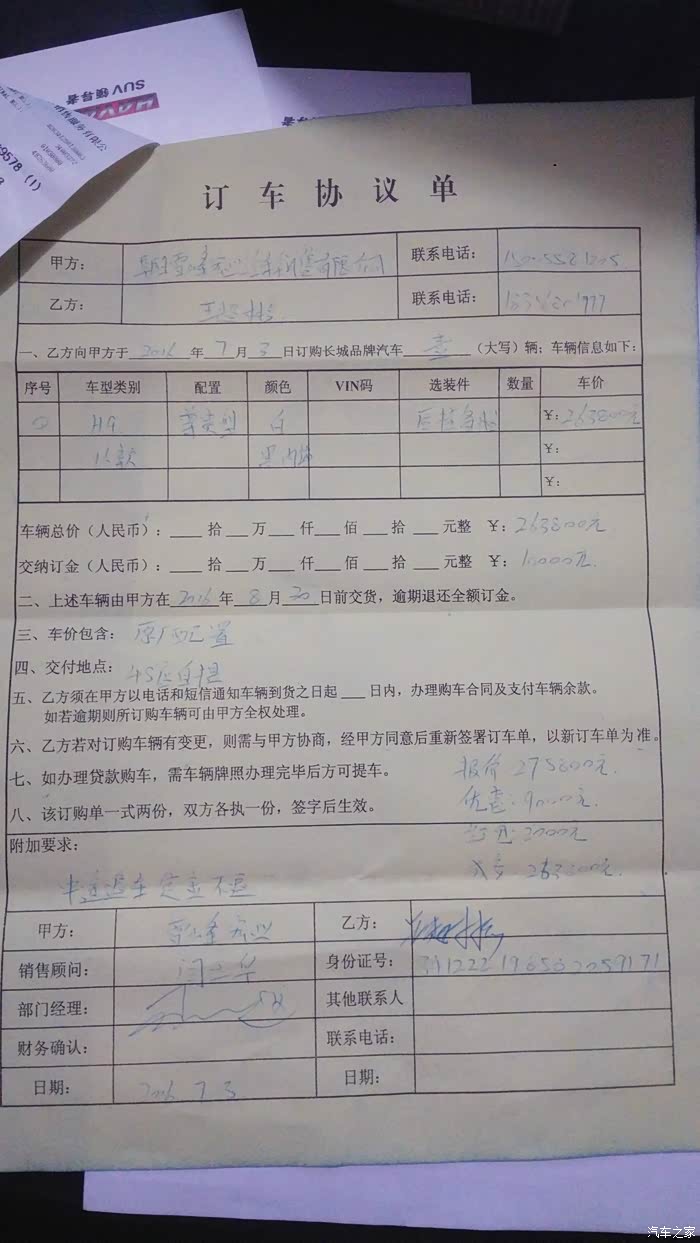 SUV领导者
9578 (1)
订车协议单
甲方： 联系电话：
乙方： 联系电话：
一、乙方向甲方于 2016 年 7 月 3 日订购长城品牌汽车 壹 （大写）辆；车辆信息如下：
序号 车型类别 配置 颜色 VIN码 选装件 数量 车价
H9 尊贵型 白 ￥：263800元
16款 黑内饰 ￥：
￥：
车辆总价（人民币）：___拾___万___仟___佰___拾___元整 ￥：263800元
交纳订金（人民币）：___拾___万___仟___佰___拾___元整 ￥：10000元.
二、上述车辆由甲方在 2016 年 8 月 30 日前交货，逾期退还全额订金。
三、车价包含：原厂配置
四、交付地点：4S店自提
五、乙方须在甲方以电话和短信通知车辆到货之日起___日内，办理购车合同及支付车辆余款。
如若逾期则所订购车辆可由甲方全权处理。
六、乙方若对订购车辆有变更，则需与甲方协商，经甲方同意后重新签署订车单，以新订车单为准。
七、如办理贷款购车，需车辆牌照办理完毕后方可提车。
报价：275800元.
八、该订购单一式两份，双方各执一份，签字后生效。
优惠：9000元.
3000元
附加要求：
263800元.
中途退车定金不退
甲方： 乙方：
销售顾问： 身份证号：
部门经理： 其他联系人
财务确认： 联系电话：
日期： 2016 7 3 日期：
汽车之家